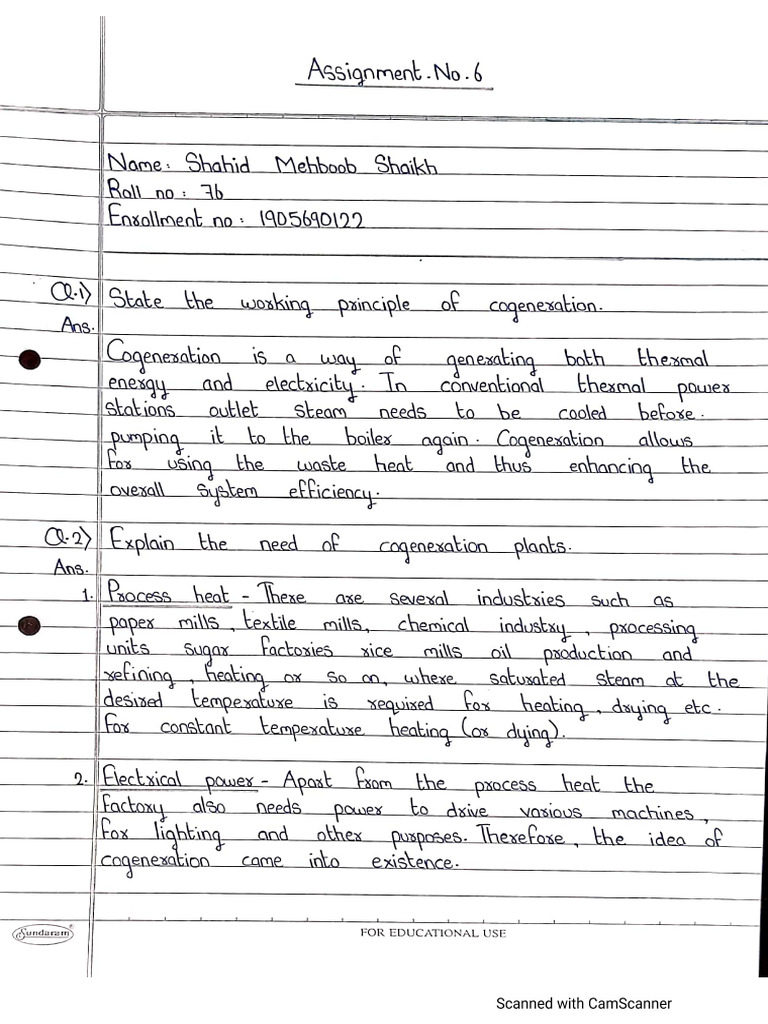 Assignment.No.6
Name: Shahid Mehboob Shaikh
Roll no: 76
Enrollment no: 1905690122
Q.1) State the working principle of cogeneration.
Ans.
Cogeneration is a way of generating both thermal
energy and electricity. In conventional thermal power
stations outlet steam needs to be cooled before.
pumping it to the boiler again. Cogeneration allows
for using the waste heat and thus enhancing the
overall system efficiency.
Q.2) Explain the need of cogeneration plants.
Ans.
1. Process heat - There are several industries such as
paper mills, textile mills, chemical industry, processing
units sugar factories rice mills oil production and
refining, heating or so on, where saturated steam at the
desired temperature is required for heating, drying etc.
for constant temperature heating (or dying).
2. Electrical power - Apart from the process heat the
factory also needs power to drive various machines,
for lighting and other purposes. Therefore, the idea of
cogeneration came into existence.
Sundaram
FOR EDUCATIONAL USE
Scanned with CamScanner